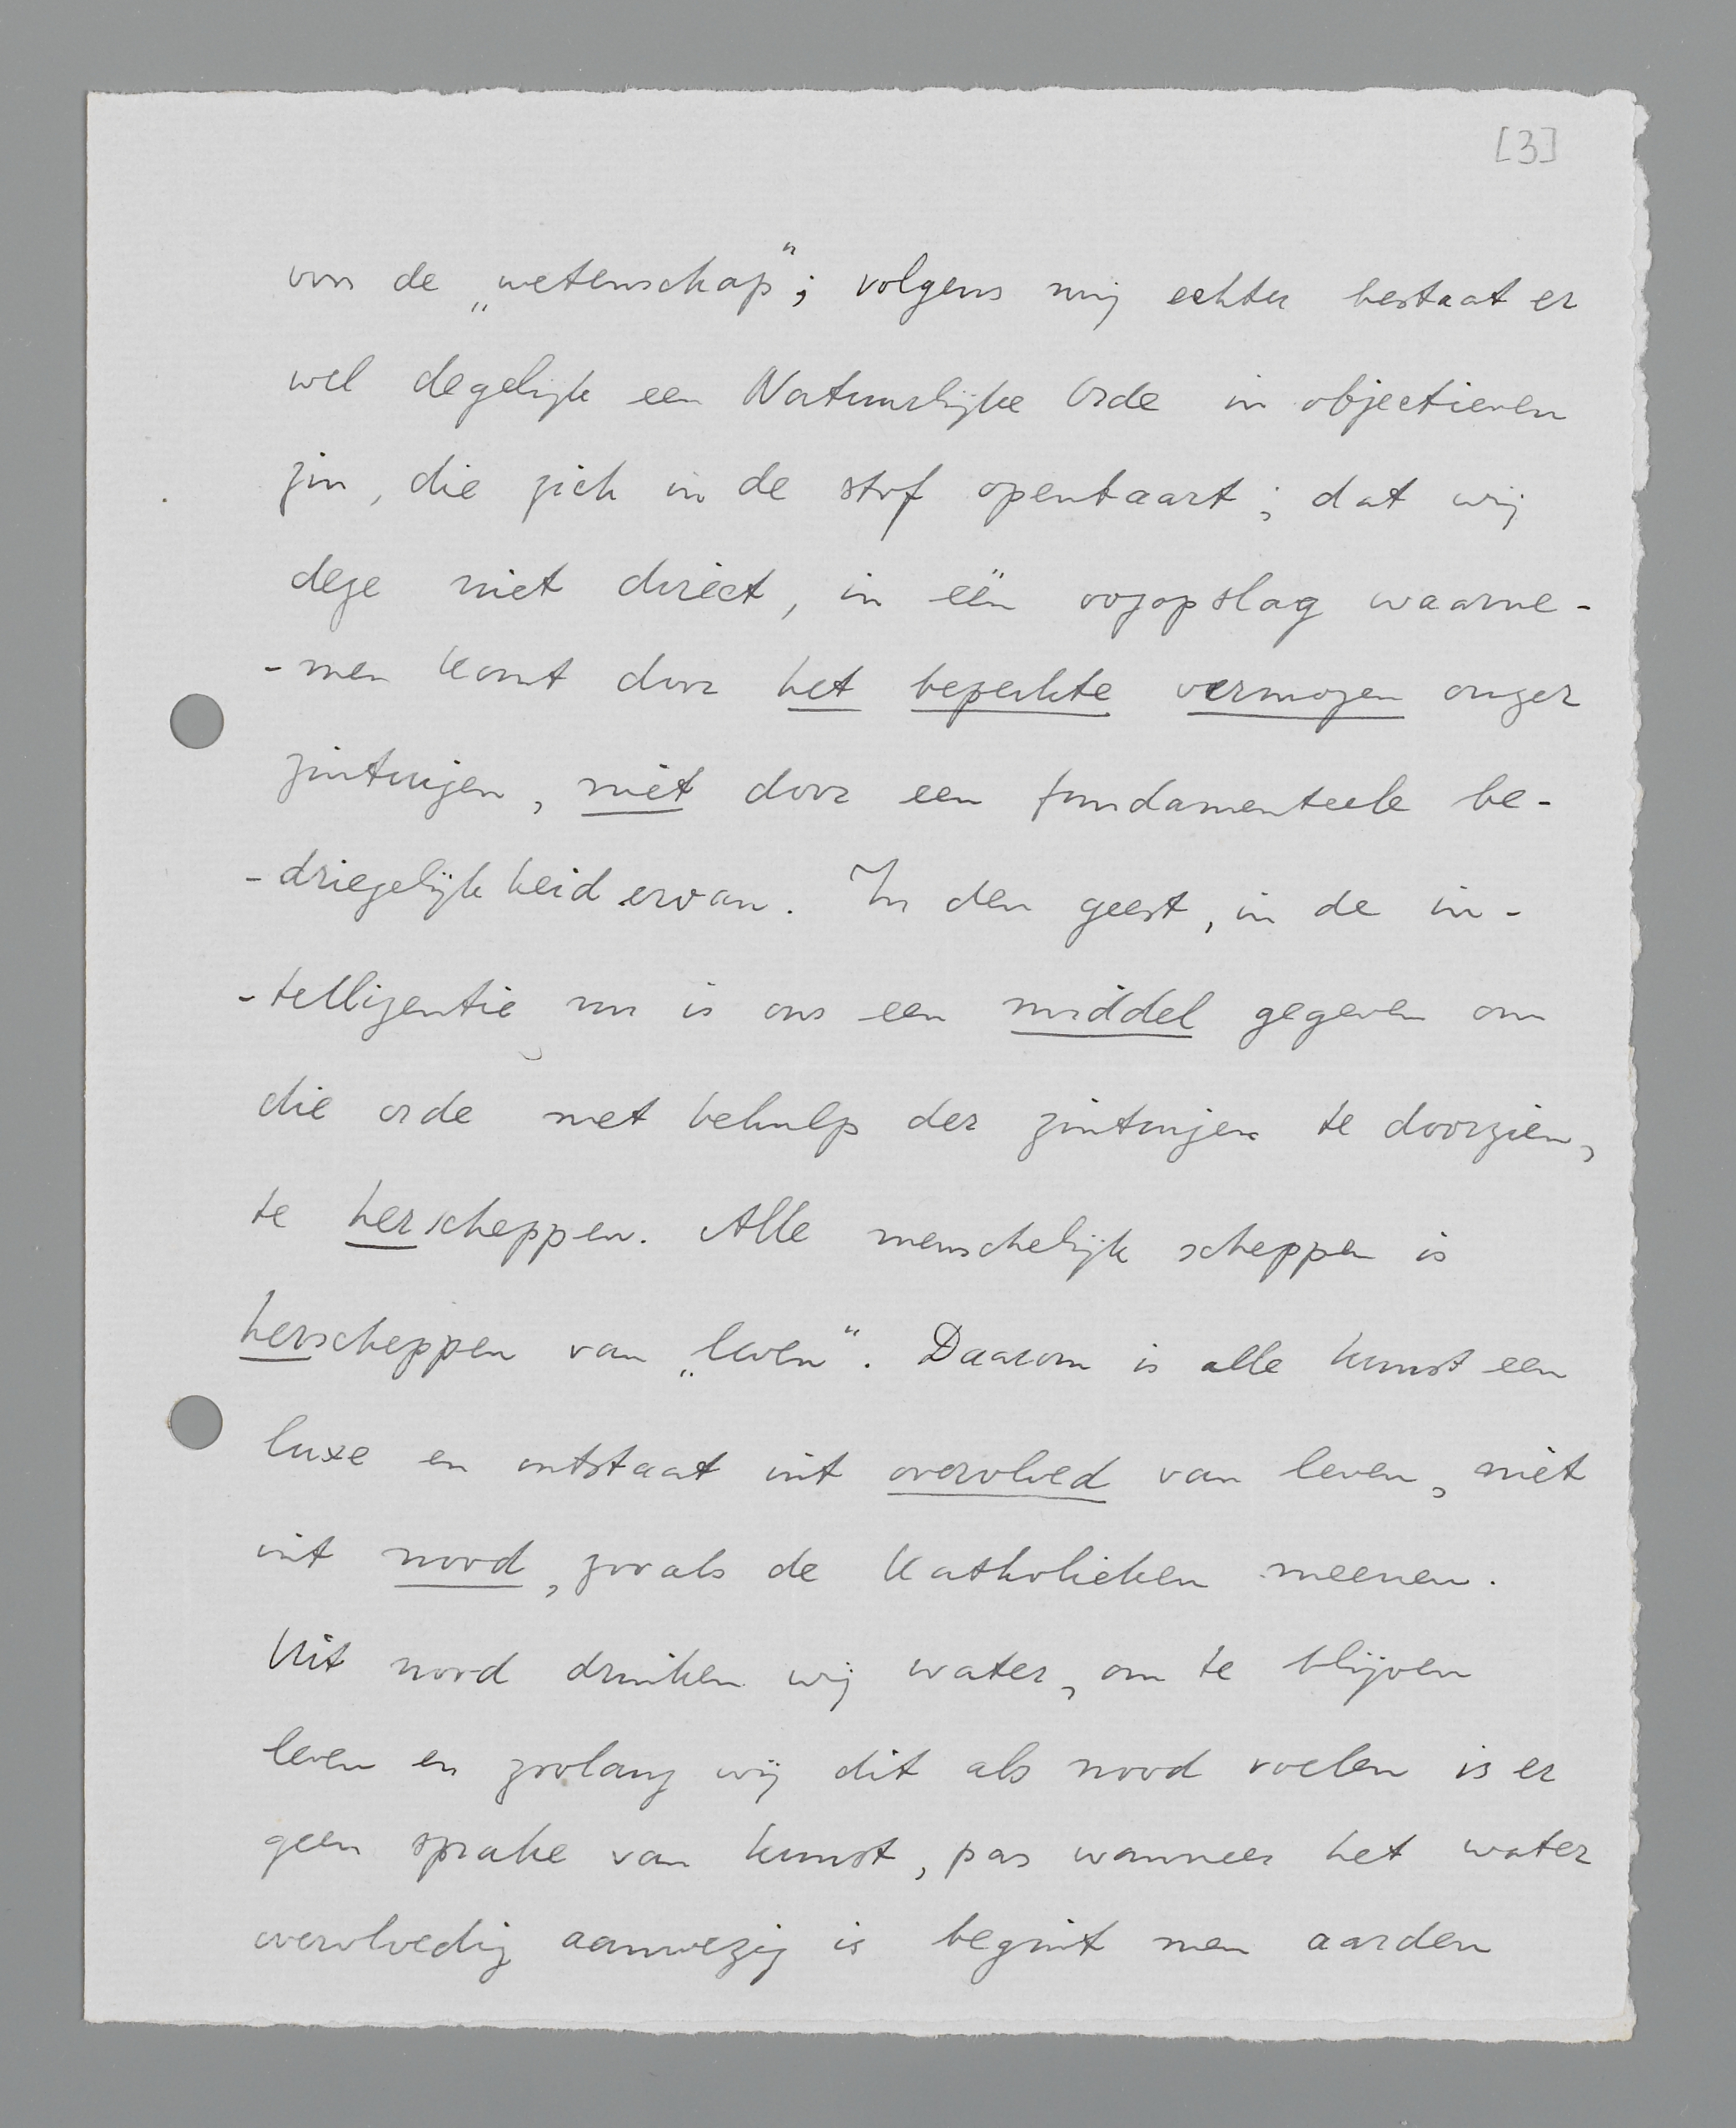 [3]
van de „wetenschap"; volgens mij echter bestaat er
wel degelijk een Natuurlijke Orde in objectieven
zin, die zich in de stof openbaart; dat wij
deze niet direct, in één oogopslag waarne-
-men komt door het beperkte vermogen onzer
zintuigen, niet door een fundamenteele be-
-driegelijkheid ervan. In den geest, in de in-
-telligentie nu is ons een middel gegeven om
die orde met behulp der zintuigen te doorzien,
te herscheppen. Alle menschelijk scheppen is
herscheppen van „leven". Daarom is alle kunst een
luxe en ontstaat uit overvloed van leven, niet
uit nood, zooals de Katholieken meenen.
Uit nood drinken wij water, om te blijven
leven en zoolang wij dit als nood voelen is er
geen sprake van kunst, pas wanneer het water
overvloedig aanwezig is begint men aarden